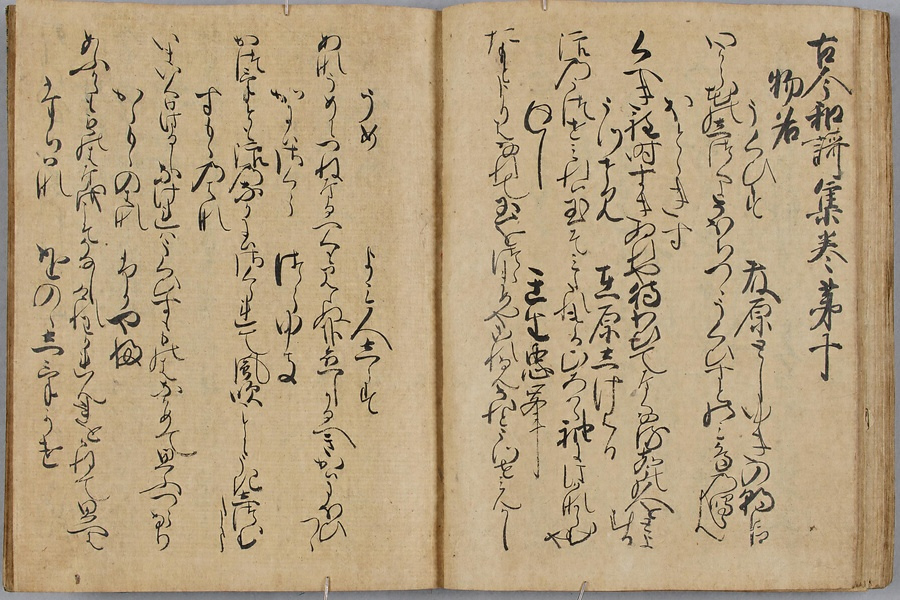 古今和謌集巻第十
物名
うくひす 藤原としゆきの朝臣
心から花のしつくにそほちつゝうくひすとのみ鳥の鳴らん
ほとゝきす
くへき程時すきぬれや待わひてなくなる声の人をとよむる
うつせみ 在原しけはる
浪のうつせみれは玉そみたれけるひろはゝ袖にはかなからむや
返し 壬生忠岑
たもとよりはなれて玉をつゝまめやこれなんそれとうつせみんかし
うめ よみ人しらす
あなうめにつねなるへくもみえぬかなこひしかるへきかはにほひつゝ
かにはさくら つらゆき
かつけとも浪のなかにはさくられて風吹ことにうきしつむ玉
すもゝの花
いまいくか春しなけれはうくひすもものはなかめて思ふへらなり
からもゝの花 ふかやふ
あふからもものはなをこそかなしけれわかれんことをかねて思へは
たちはな をのゝしけかけ